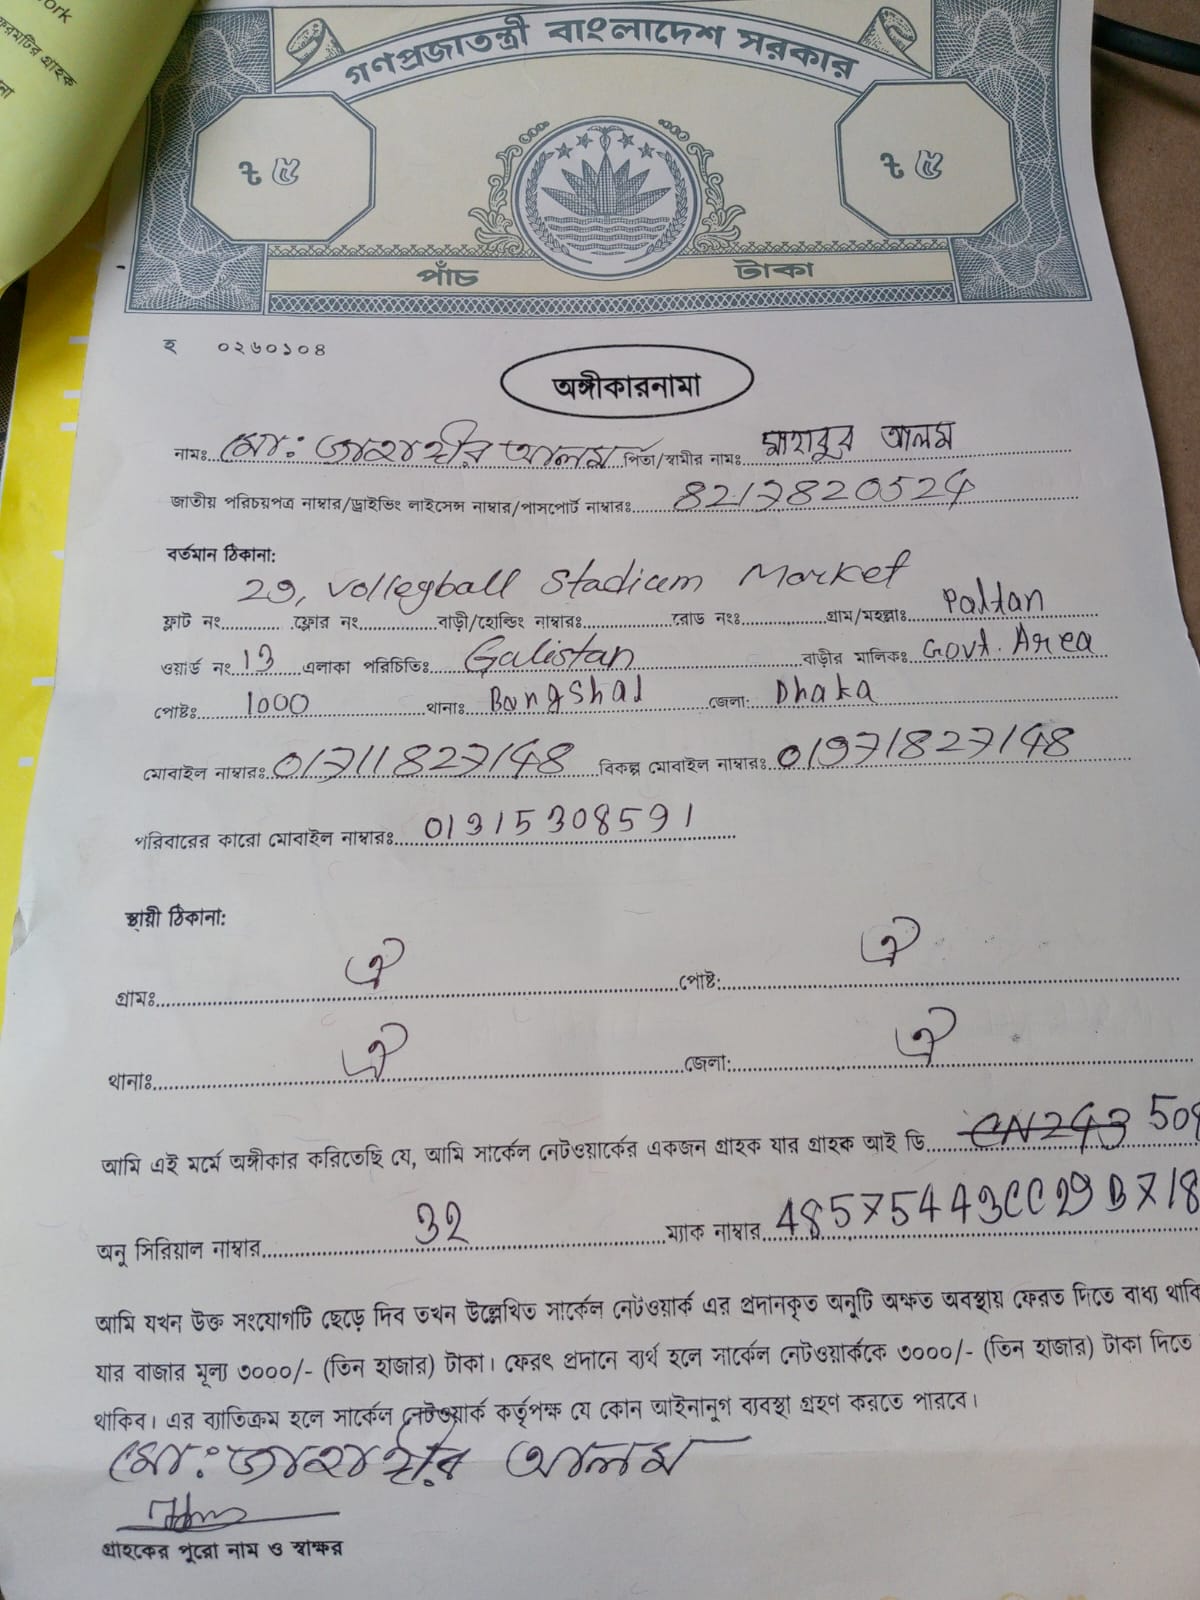 ork
ফরমটির গ্রাহক
না
গণপ্রজাতন্ত্রী বাংলাদেশ সরকার
ট ৫ ট ৫
পাঁচ টাকা
হ ০২৬০১০৪
অঙ্গীকারনামা
নামঃ মোঃ জাহাঙ্গীর আলম পিতা/স্বামীর নামঃ মাহাবুব আলম
জাতীয় পরিচয়পত্র নাম্বার/ড্রাইভিং লাইসেন্স নাম্বার/পাসপোর্ট নাম্বারঃ 8217820524
বর্তমান ঠিকানা:
29, Volleyball Stadium Market
ফ্লাট নং ফ্লোর নং বাড়ী/হোল্ডিং নাম্বারঃ রোড নংঃ গ্রাম/মহল্লাঃ Paltan
ওয়ার্ড নং 13 এলাকা পরিচিতিঃ Galistan বাড়ীর মালিকঃ Govt. Area
পোষ্টঃ 1000 থানাঃ Bangshal জেলা: Dhaka
মোবাইল নাম্বারঃ 01711827148 বিকল্প মোবাইল নাম্বারঃ 01971827148
পরিবারের কারো মোবাইল নাম্বারঃ 01315308591
স্থায়ী ঠিকানা:
গ্রামঃ ঐ পোষ্ট: ঐ
থানাঃ ঐ জেলা: ঐ
আমি এই মর্মে অঙ্গীকার করিতেছি যে, আমি সার্কেল নেটওয়ার্কের একজন গ্রাহক যার গ্রাহক আই ডি
অনু সিরিয়াল নাম্বার 32 ম্যাক নাম্বার 48575443CC29B718
আমি যখন উক্ত সংযোগটি ছেড়ে দিব তখন উল্লেখিত সার্কেল নেটওয়ার্ক এর প্রদানকৃত অনুটি অক্ষত অবস্থায় ফেরত দিতে বাধ্য থাকি
যার বাজার মূল্য ৩০০০/- (তিন হাজার) টাকা। ফেরৎ প্রদানে ব্যর্থ হলে সার্কেল নেটওয়ার্ককে ৩০০০/- (তিন হাজার) টাকা দিতে
থাকিব। এর ব্যাতিক্রম হলে সার্কেল নেটওয়ার্ক কর্তৃপক্ষ যে কোন আইনানুগ ব্যবস্থা গ্রহণ করতে পারবে।
মোঃ জাহাঙ্গীর আলম
গ্রাহকের পুরো নাম ও স্বাক্ষর